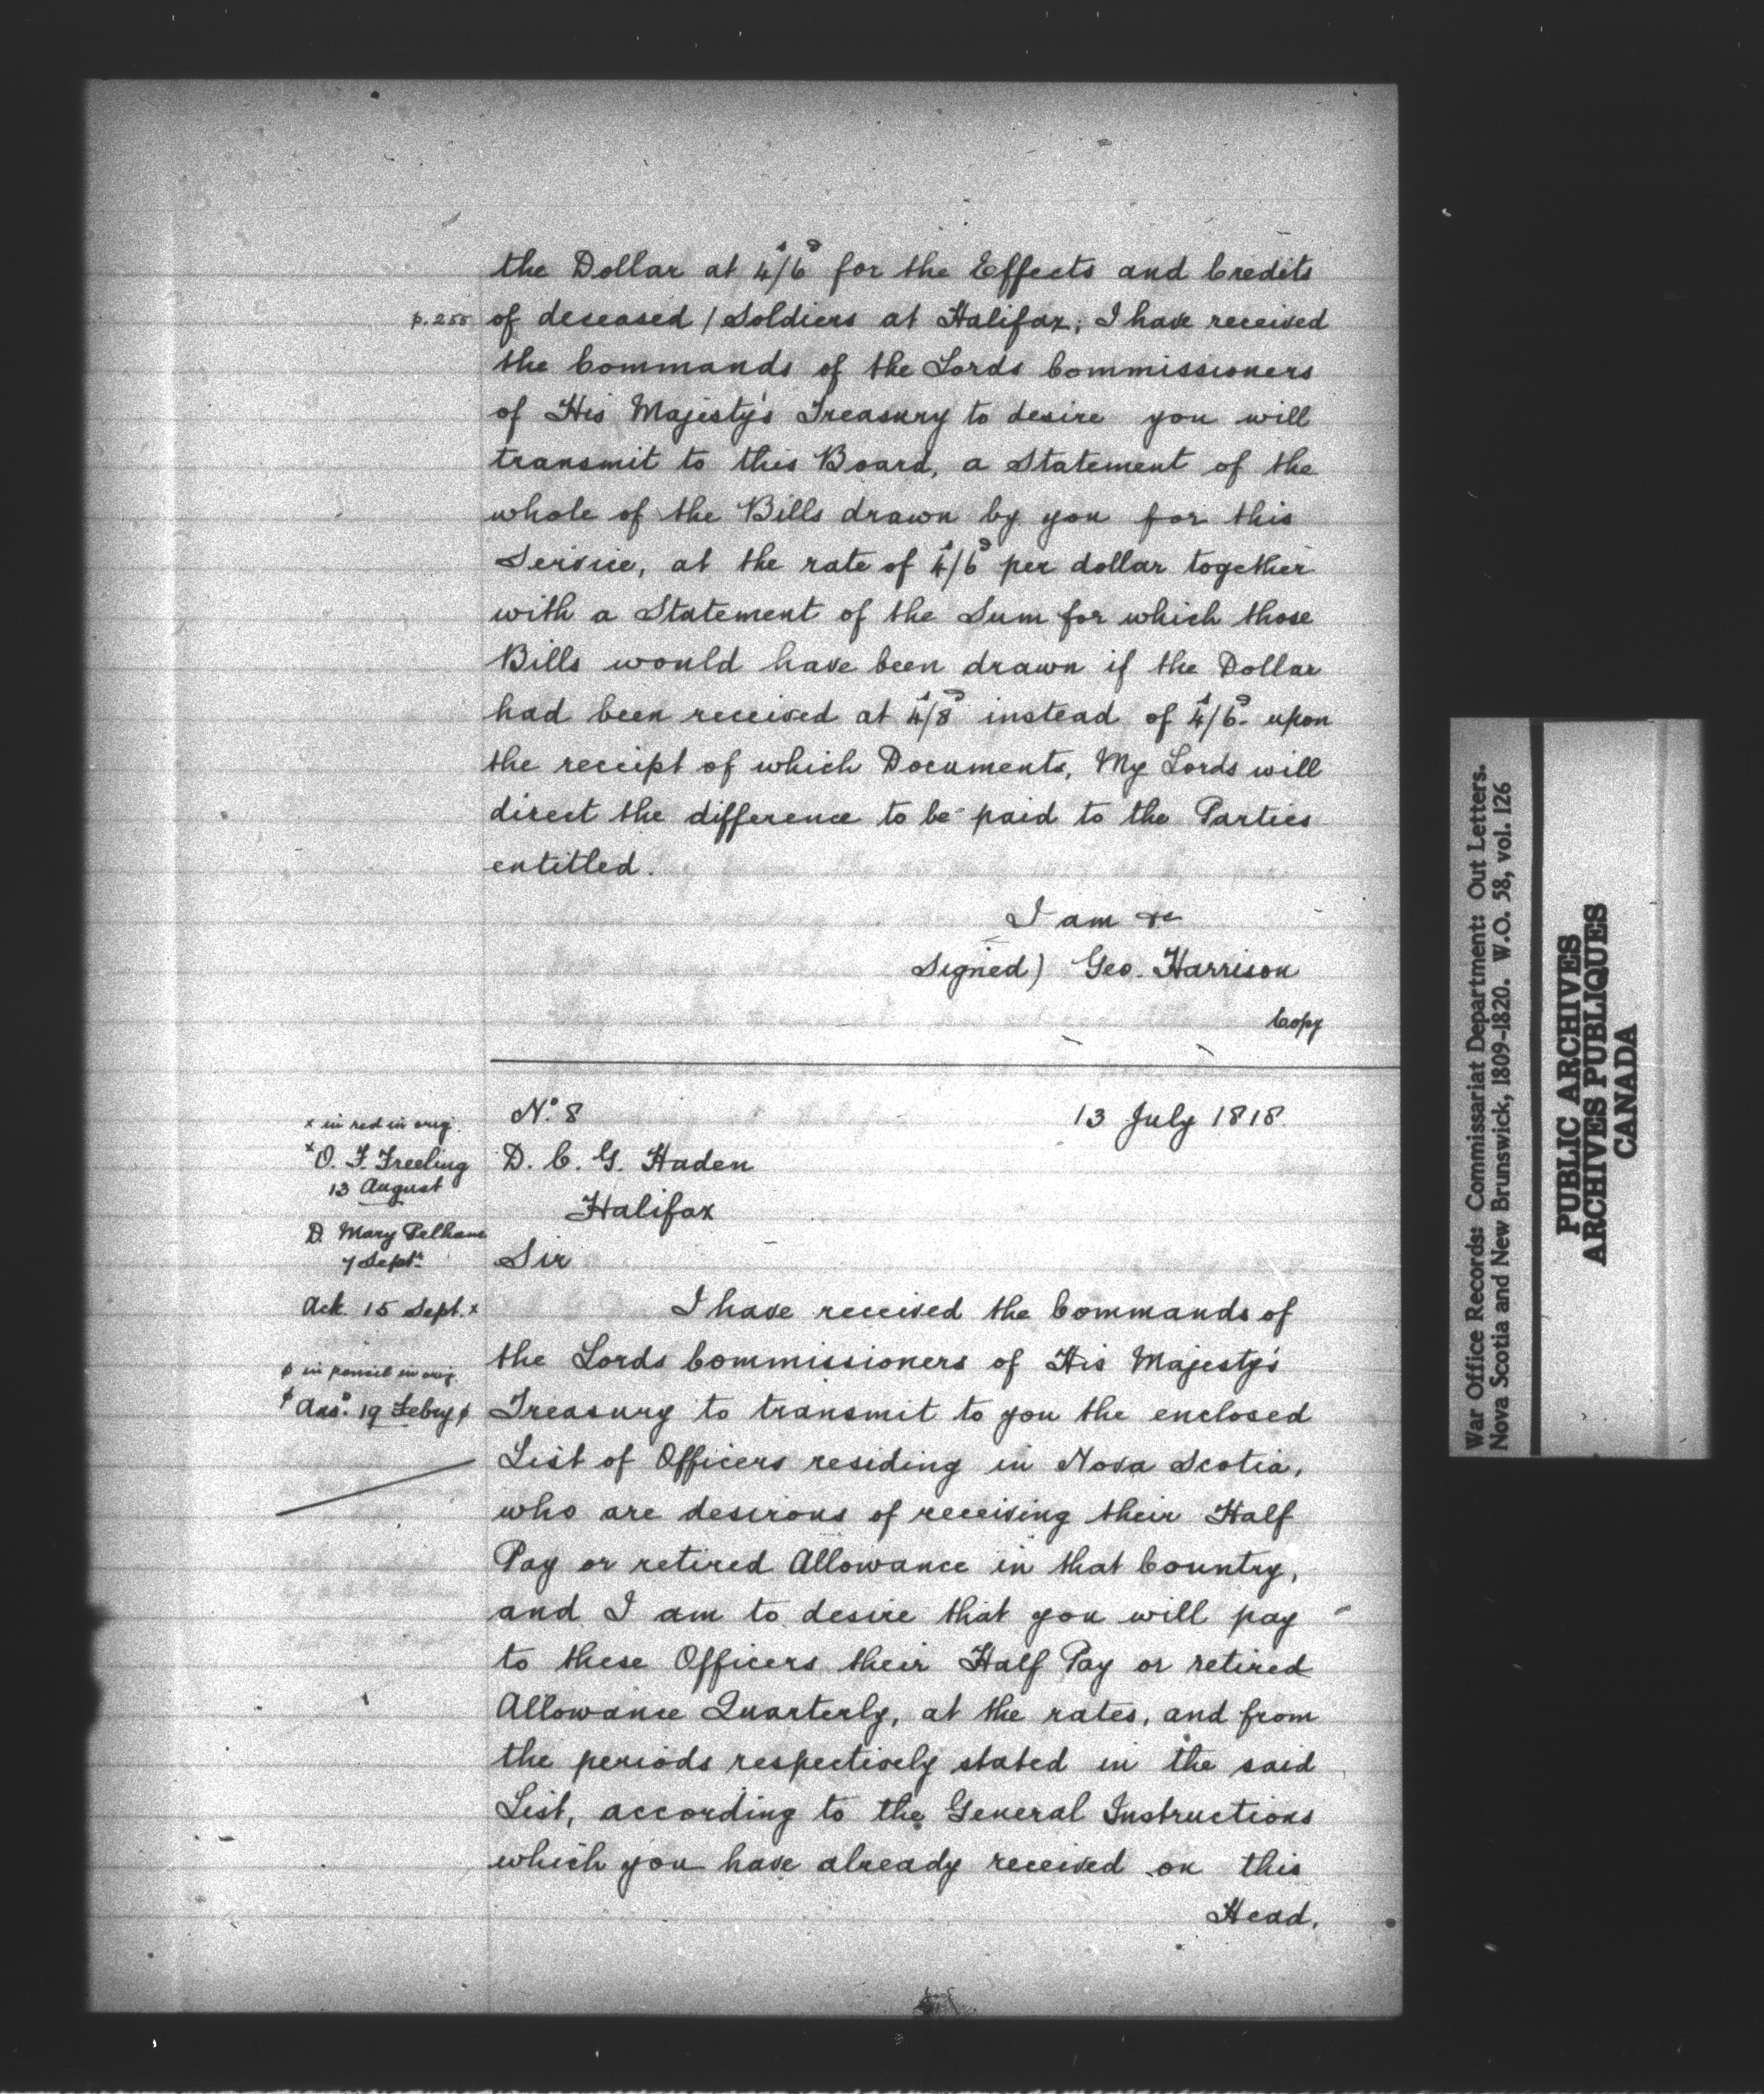 the Dollar at 4s/6d for the Effects and Credits
p.255 of deceased / Soldiers at Halifax, I have received
the Commands of the Lords Commissioners
of His Majesty's Treasury to desire you will
transmit to this Board, a Statement of the
whole of the Bills drawn by you for this
Service, at the rate of 4s/6d per dollar together
with a Statement of the Sum for which those
Bills would have been drawn if the Dollar
had been received at 4s/8d instead of 4s/6d. upon
the receipt of which Documents, My Lords will
direct the difference to be paid to the Parties
entitled.
I am &c
Signed) Geo. Harrison
Copy
No. 8 13 July 1818.
D. C. G. Haden
Halifax
Sir
x in red in orig.
x O. F. Freeling
13 August
D. Mary Pelham
7 Sept.
Ack. 15 Sept. x
ϕ in pencil in orig.
ϕ Ansd. 19 Febry ϕ
I have received the Commands of
the Lords Commissioners of His Majesty's
Treasury to transmit to you the enclosed
List of Officers residing in Nova Scotia,
who are desirous of receiving their Half
Pay or retired Allowance in that Country,
and I am to desire that you will pay
to these Officers their Half Pay or retired
Allowance Quarterly, at the rates, and from
the periods respectively stated in the said
List, according to the General Instructions
which you have already received on this
Head.
War Office Records: Commissariat Department: Out Letters.
Nova Scotia and New Brunswick, 1809-1820. W.O. 58, vol. 126
PUBLIC ARCHIVES
ARCHIVES PUBLIQUES
CANADA